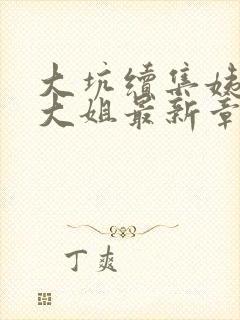 大坑续集姊
大姐最新章
丁爽